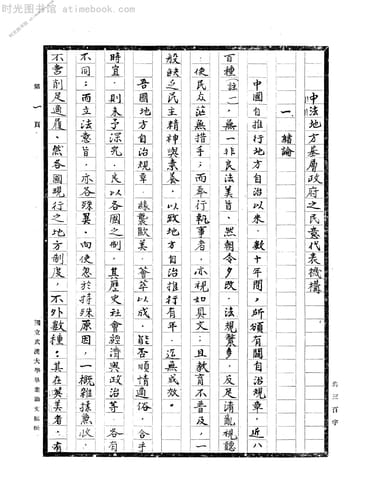 时光图书馆 atimebook.com
中法地方基層政府之民意代表機構
一 緒論
中國自推行地方自治以來，數十年間，所頒有關自治規章，近八
百種（註一），無一非良法美旨。然朝令夕改，法規繁多，反足淆亂視聽
，使民众茫無措手；而奉行執事者，亦視如具文；且教育不普及，一
般缺乏民主精神與素養，以致地方自治推行有年，迄無成效。
吾國地方自治規章，樣襲歐美，薈萃以成，能否順情適俗，合乎
時宜，則未予深究。良以各國之制，其歷史社會經濟與政治等，各有
不同；而立法意旨，亦各殊異。向使忽於特殊原因，一概雜揉兼收，
不啻削足適履。然各國現行之地方制度，不外數種：其在英美者，有
第一頁
國立武漢大學畢業論文稿紙
共三百字
时光图书馆 - atimebook.com